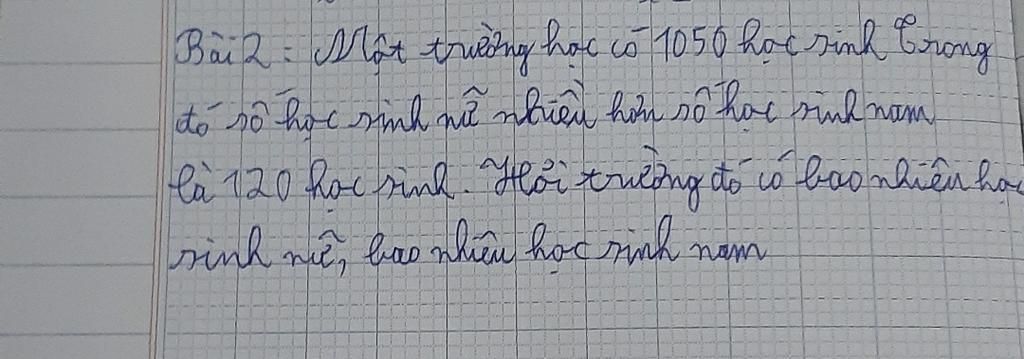 Bài 2: Một trường học có 1050 học sinh Trong
đó số học sinh nữ nhiều hơn số học sinh nam
là 120 học sinh. Hỏi trường đó có bao nhiêu học
sinh nữ, bao nhiêu học sinh nam